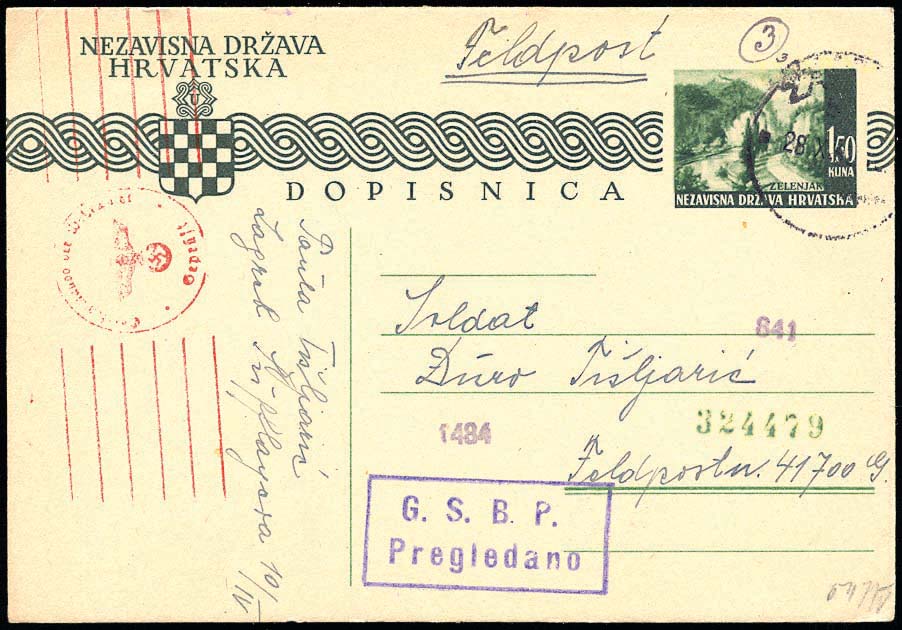 NEZAVISNA DRŽAVA
HRVATSKA
U
Feldpost
3
DOPISNICA
28.XI
1.50
KUNA
ZELENJAK
NEZAVISNA DRŽAVA HRVATSKA
Geprüft
Zagreb
10/
IV
Soldat
641
Đuro Tišljarić
1484
324479
Feldpostn. 41700 G.
G. S. B. P.
Pregledano